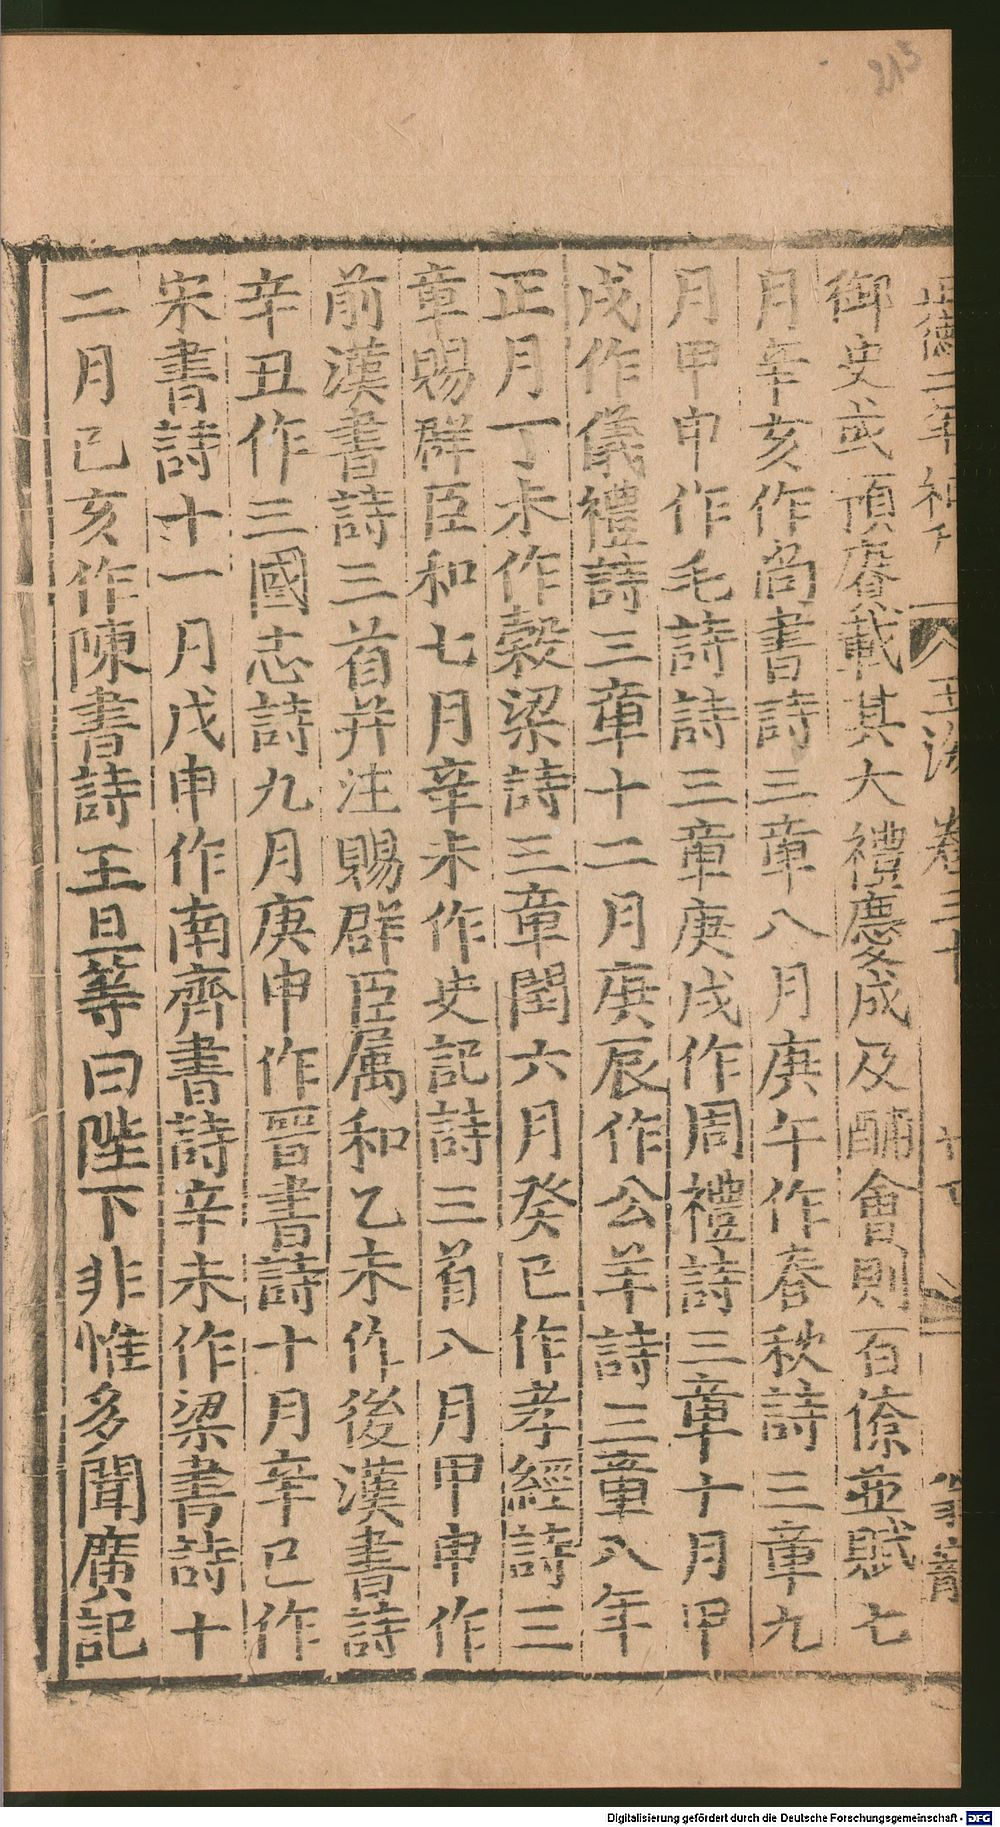 215
正德二年補刊
玉海 卷三十
御史或頂賡載其大禮慶成及酺會則百僚並賦七
月辛亥作尚書詩三章八月庚午作春秋詩三章九
月甲申作毛詩詩三章庚戌作周禮詩三章十月甲
戌作儀禮詩三章十二月庚辰作公羊詩三章八年
正月丁未作穀梁詩三章閏六月癸巳作孝經詩三
章賜群臣和七月辛未作史記詩三首八月甲申作
前漢書詩三首并注賜群臣属和乙未作後漢書詩
辛丑作三國志詩九月庚申作晉書詩十月辛巳作
宋書詩十一月戊申作南齊書詩辛未作梁書詩十
二月己亥作陳書詩王旦等曰陛下非惟多聞廣記
Digitalisierung gefördert durch die Deutsche Forschungsgemeinschaft - DFG